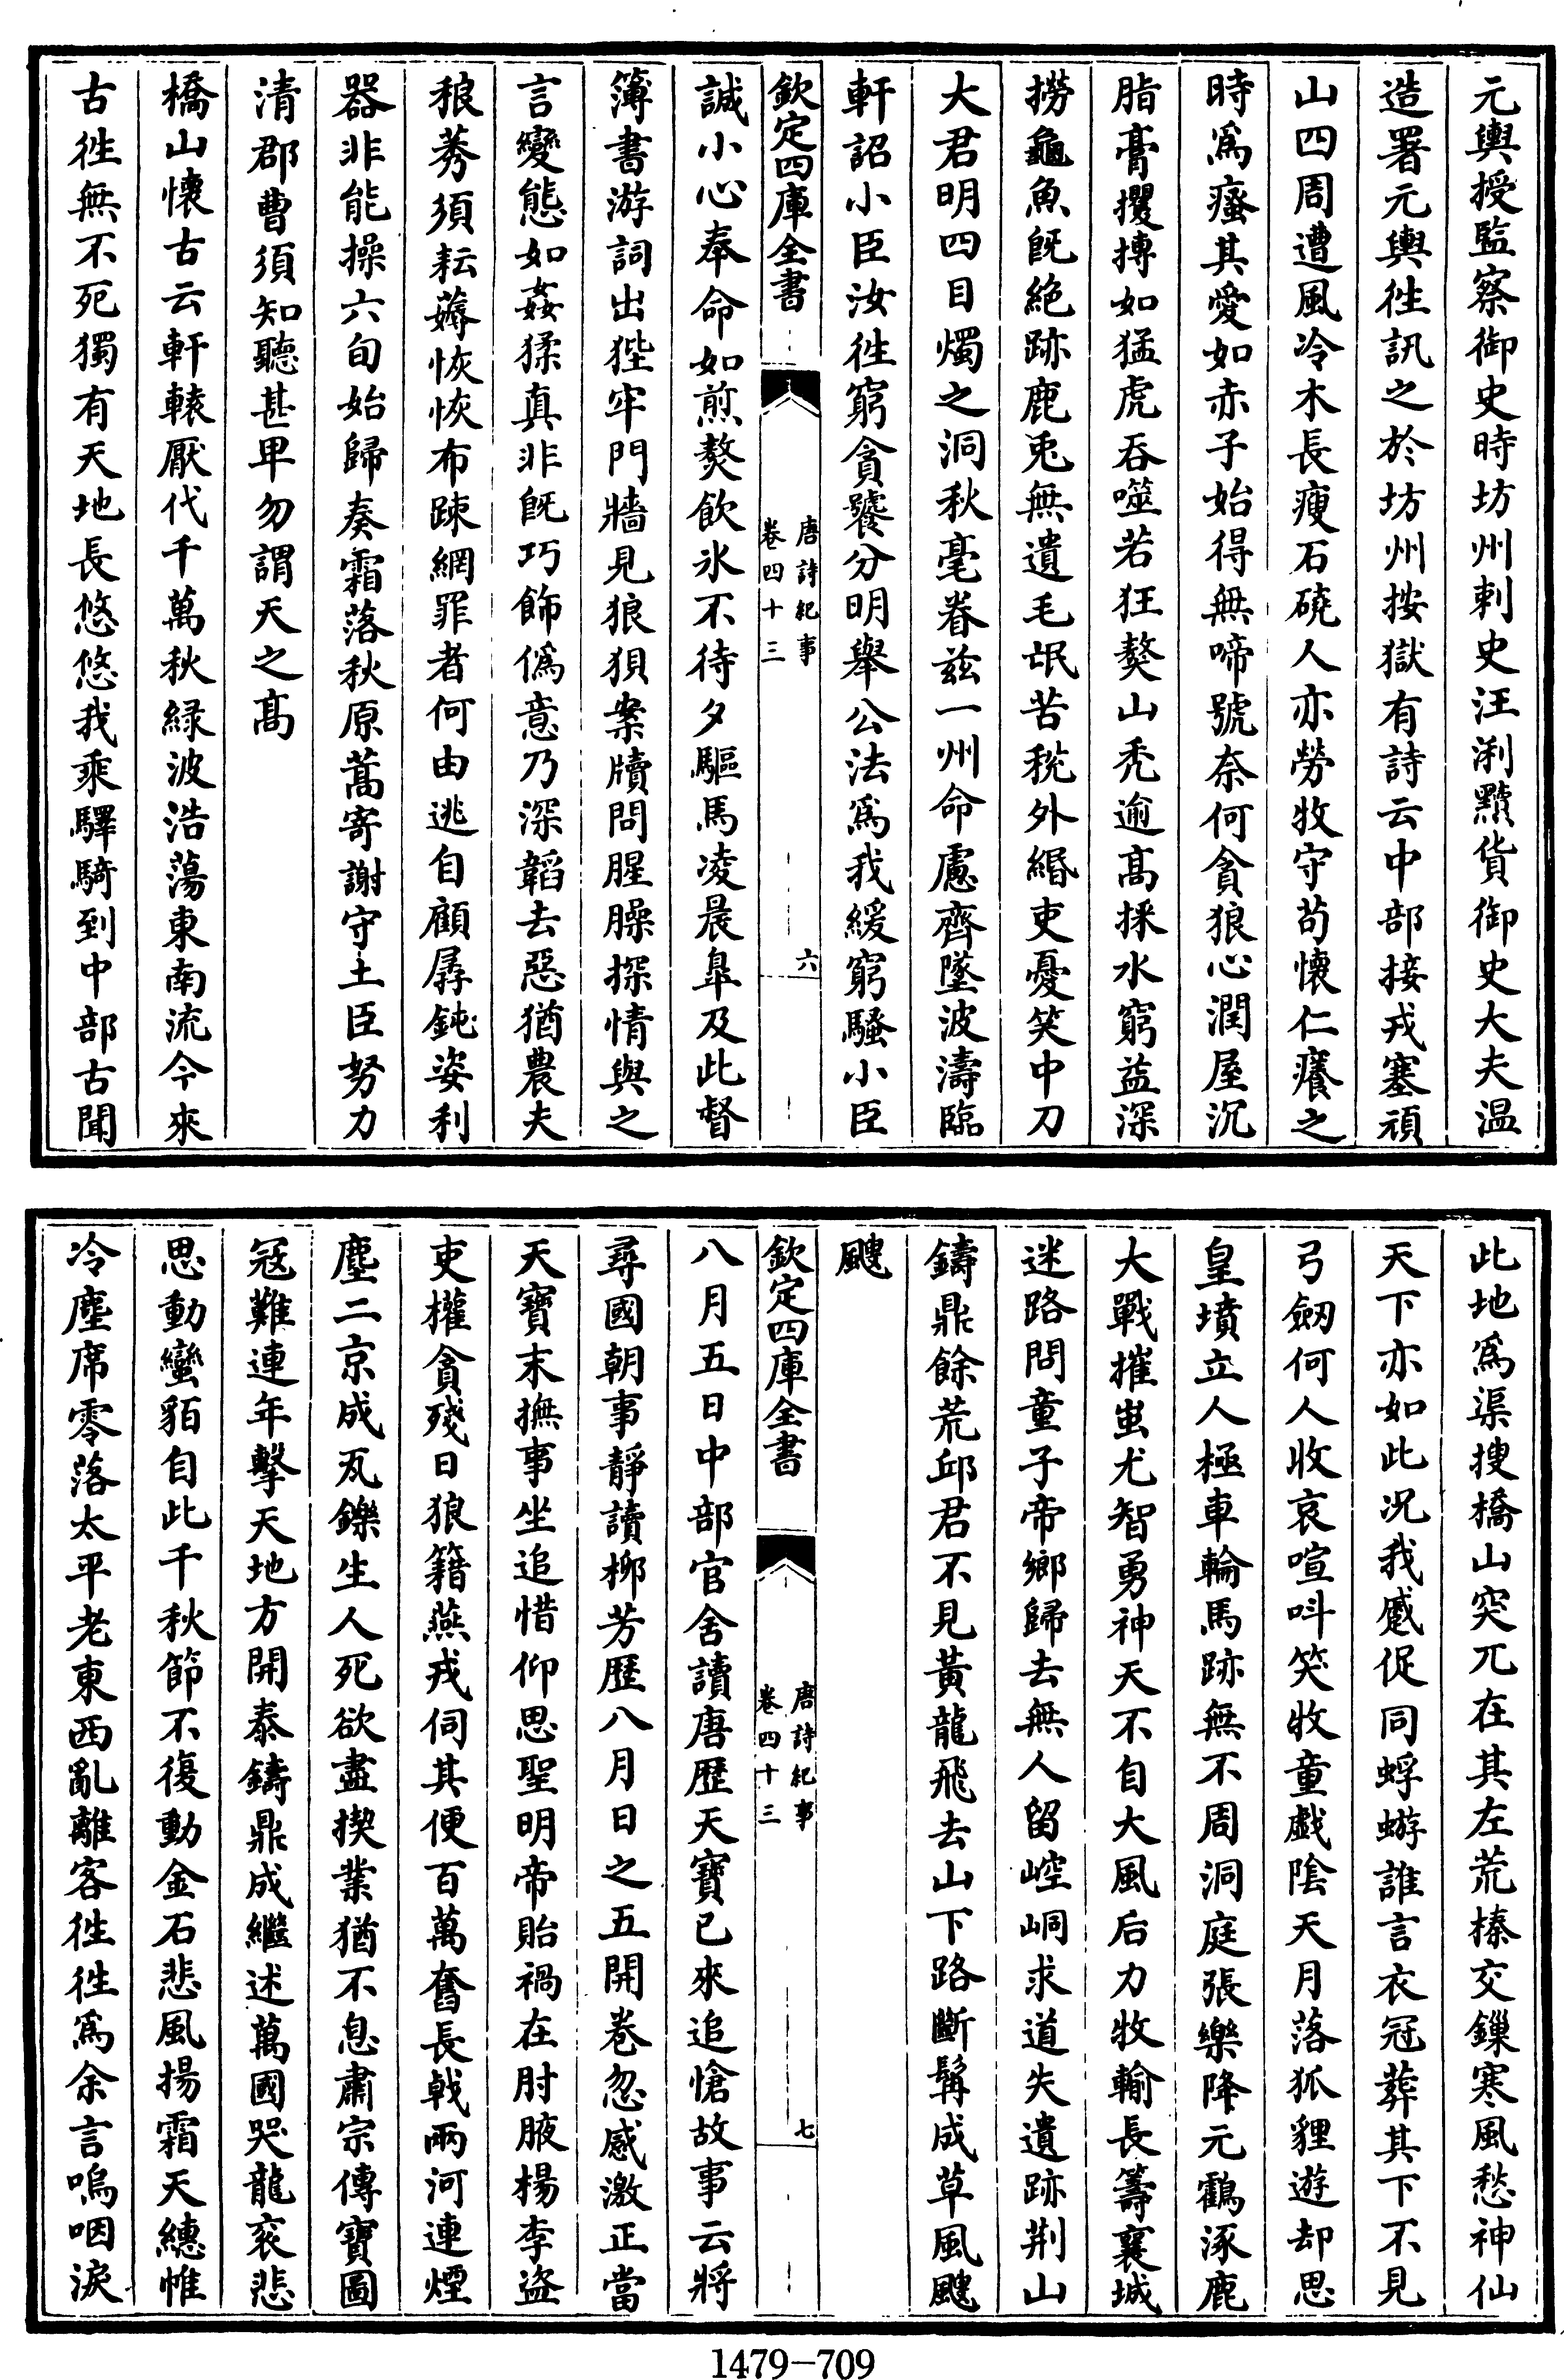 元輿授監察御史時坊州刺史汪浰黷貨御史大夫温
造署元輿徃訊之於坊州按獄有詩云中部接戎塞頑
山四周遭風冷木長瘦石磽人亦勞牧守苟懐仁癢之
時爲瘙其愛如赤子始得無啼號奈何貪狼心潤屋沉
脂膏攫搏如猛虎吞噬若狂獒山秃逾髙採水窮益深
撈龜魚旣絶跡鹿兎無遺毛氓苦税外緡吏憂笑中刀
大君明四目燭之洞秋毫眷兹一州命慮齊墜波濤臨
軒詔小臣汝徃窮貪饕分明舉公法爲我緩窮騷小臣
欽定四庫全書
唐詩紀事
卷四十三
六
誠小心奉命如煎熬飲氷不待夕驅馬凌晨臯及此督
簿書游詞出狴牢門牆見狼狽案牘問腥臊探情與之
言變態如姦猱真非旣巧飾僞意乃深韜去惡猶農夫
稂莠須耘薅恢恢布踈網罪者何由逃自顧孱鈍姿利
器非能操六旬始歸奏霜落秋原蒿寄謝守土臣努力
清郡曹須知聽甚卑勿謂天之髙
橋山懐古云軒轅厭代千萬秋緑波浩蕩東南流今來
古徃無不死獨有天地長悠悠我乘驛騎到中部古聞
此地爲渠搜橋山突兀在其左荒榛交鏁寒風愁神仙
天下亦如此况我蹙促同蜉蝣誰言衣冠葬其下不見
弓劒何人收哀喧呌笑牧童戲陰天月落狐貍遊却思
皇墳立人極車輪馬跡無不周洞庭張樂降元鶴涿鹿
大戰摧蚩尤智勇神天不自大風后力牧輸長籌襄城
迷路問童子帝鄉歸去無人留崆峒求道失遺跡荆山
鑄鼎餘荒邱君不見黃龍飛去山下路斷髯成草風颼
颼
欽定四庫全書
唐詩紀事
卷四十三
七
八月五日中部官舍讀唐歷天寶已來追愴故事云將
尋國朝事靜讀栁芳歴八月日之五開巻忽感激正當
天寶末撫事坐追惜仰思聖明帝貽禍在肘腋楊李盗
吏權貪殘日狼籍燕戎伺其便百萬奮長戟兩河連煙
塵二京成瓦鑠生人死欲盡揳業猶不息肅宗傳寶圖
冦難連年擊天地方開泰鑄鼎成繼述萬國哭龍衮悲
思動蠻貊自此千秋節不復動金石悲風揚霜天繐帷
冷塵席零落太平老東西亂離客徃徃爲余言嗚咽淚
1479-709